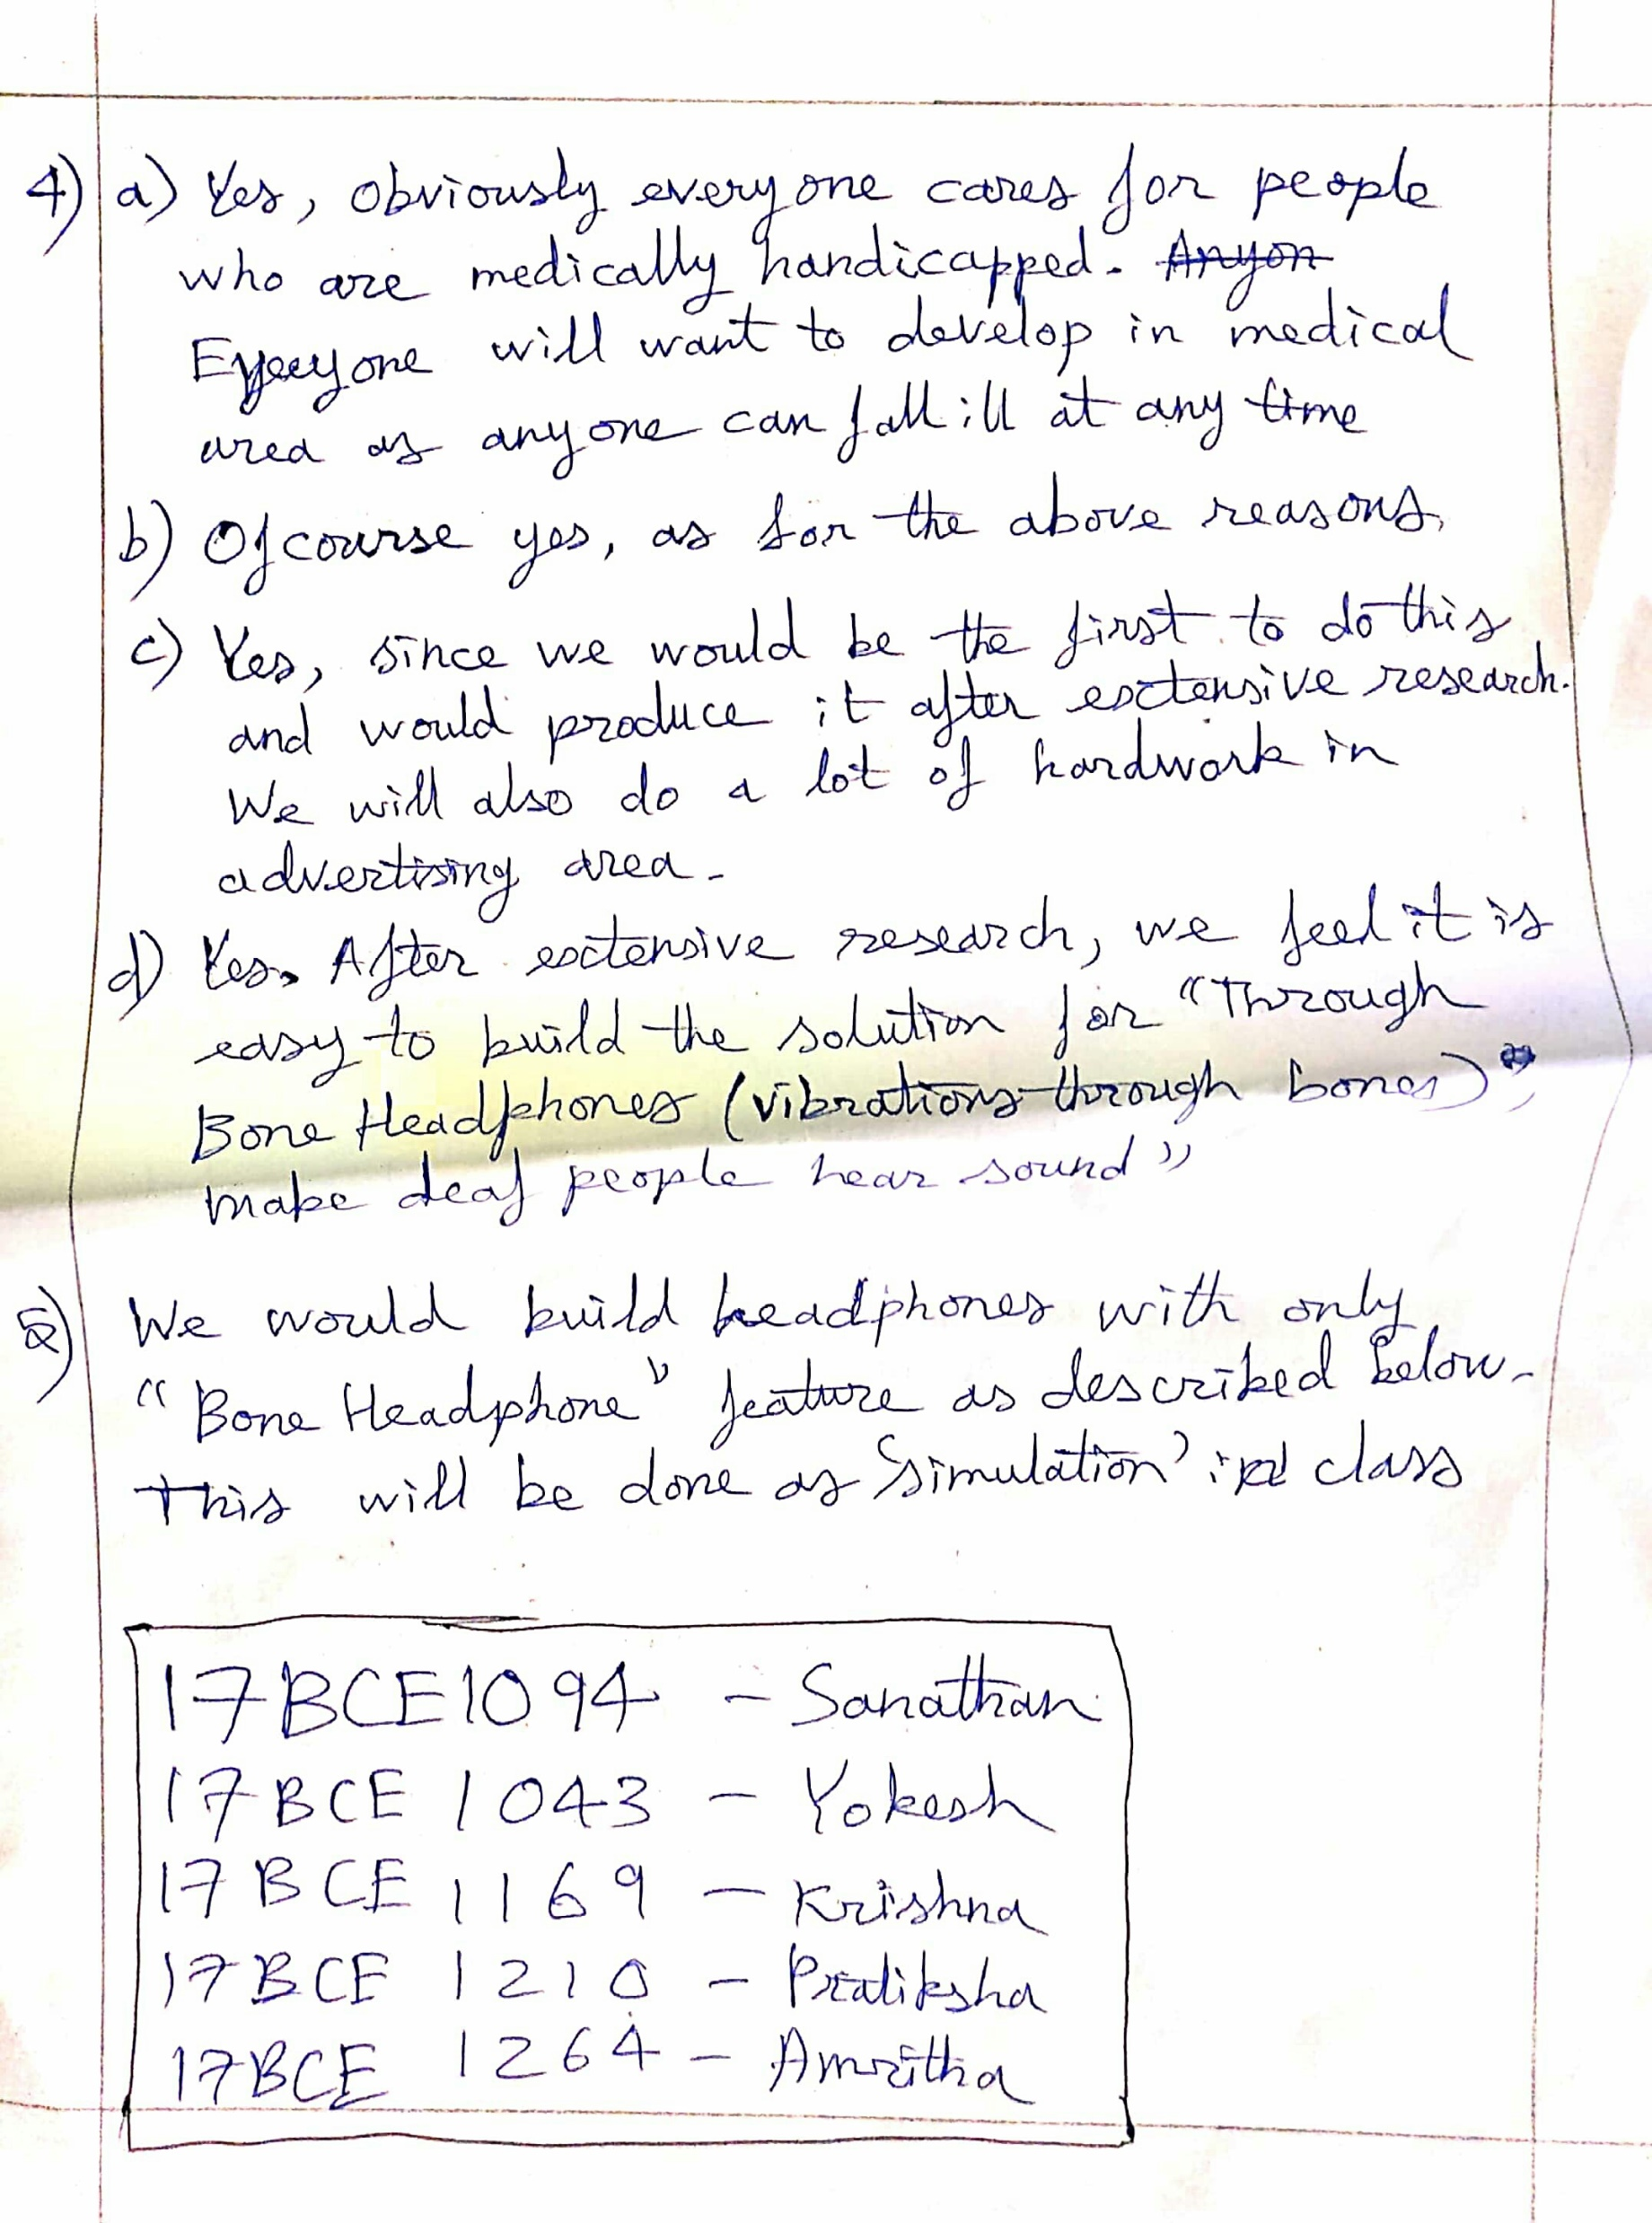 4) a) Yes, obviously everyone cares for people
who are medically handicapped. Anyon
Everyone will want to develop in medical
area as anyone can fall ill at any time
b) Ofcourse yes, as for the above reasons.
c) Yes, since we would be the first to do this
and would produce it after extensive research.
We will also do a lot of hardwork in
advertising area.
d) Yes. After extensive research, we feel it is
easy to build the solution for "Through
Bone Headphones (vibrations through bones)"
make deaf people hear sound"
5) We would build headphones with only
"Bone Headphone" feature as described below.
This will be done as 'simulation' in class
17BCE1094 - Sanathan
17BCE 1043 - Yokesh
17BCE 1169 - Krishna
17BCE 1210 - Pratiksha
17BCE 1264 - Amritha